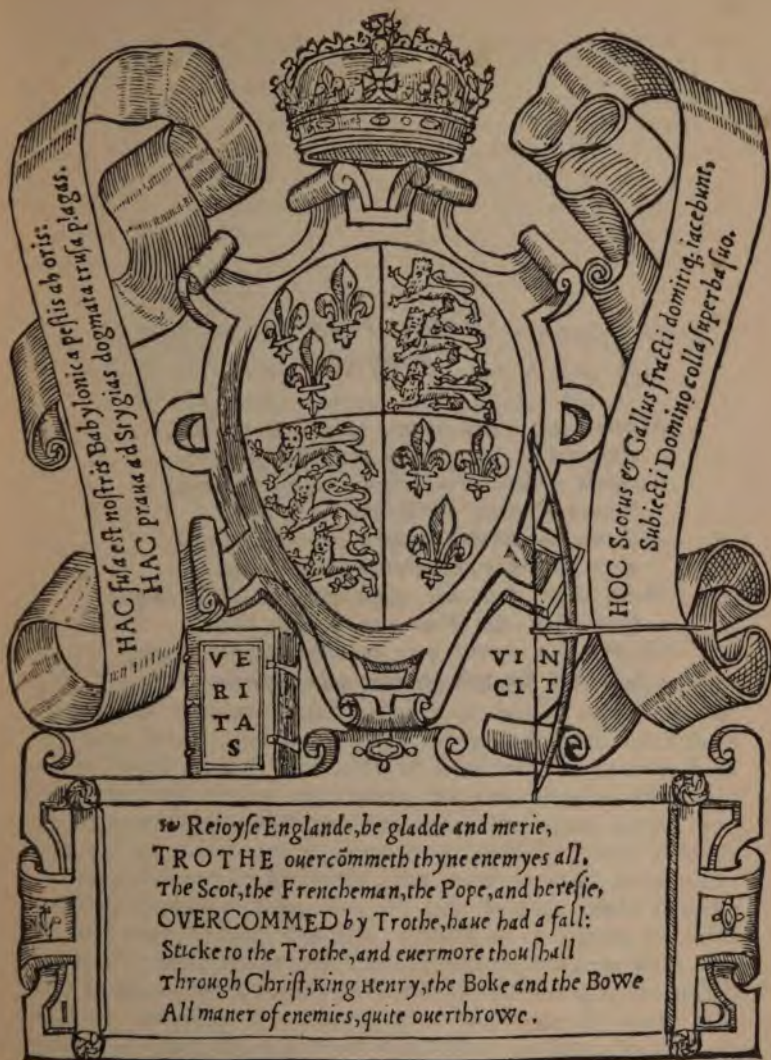 HAC fusa est nostris Babylonica pestis ab oris:
HAC praua ad Stygias dogmata trusa plagas.
HOC Scotus & Gallus fracti domitiq; iacebunt,
Subiecti Domino colla superba suo.
VE
RI
TA
S
VIN
CIT
Reioyse Englande, be gladde and merie,
TROTHE ouercōmeth thyne enemyes all,
The Scot, the Frencheman, the Pope, and heresie,
OVERCOMMED by Trothe, haue had a fall:
Sticke to the Trothe, and euermore thou shall
Through Christ, King Henry, the Boke and the Bowe
All maner of enemies, quite ouerthrowe.